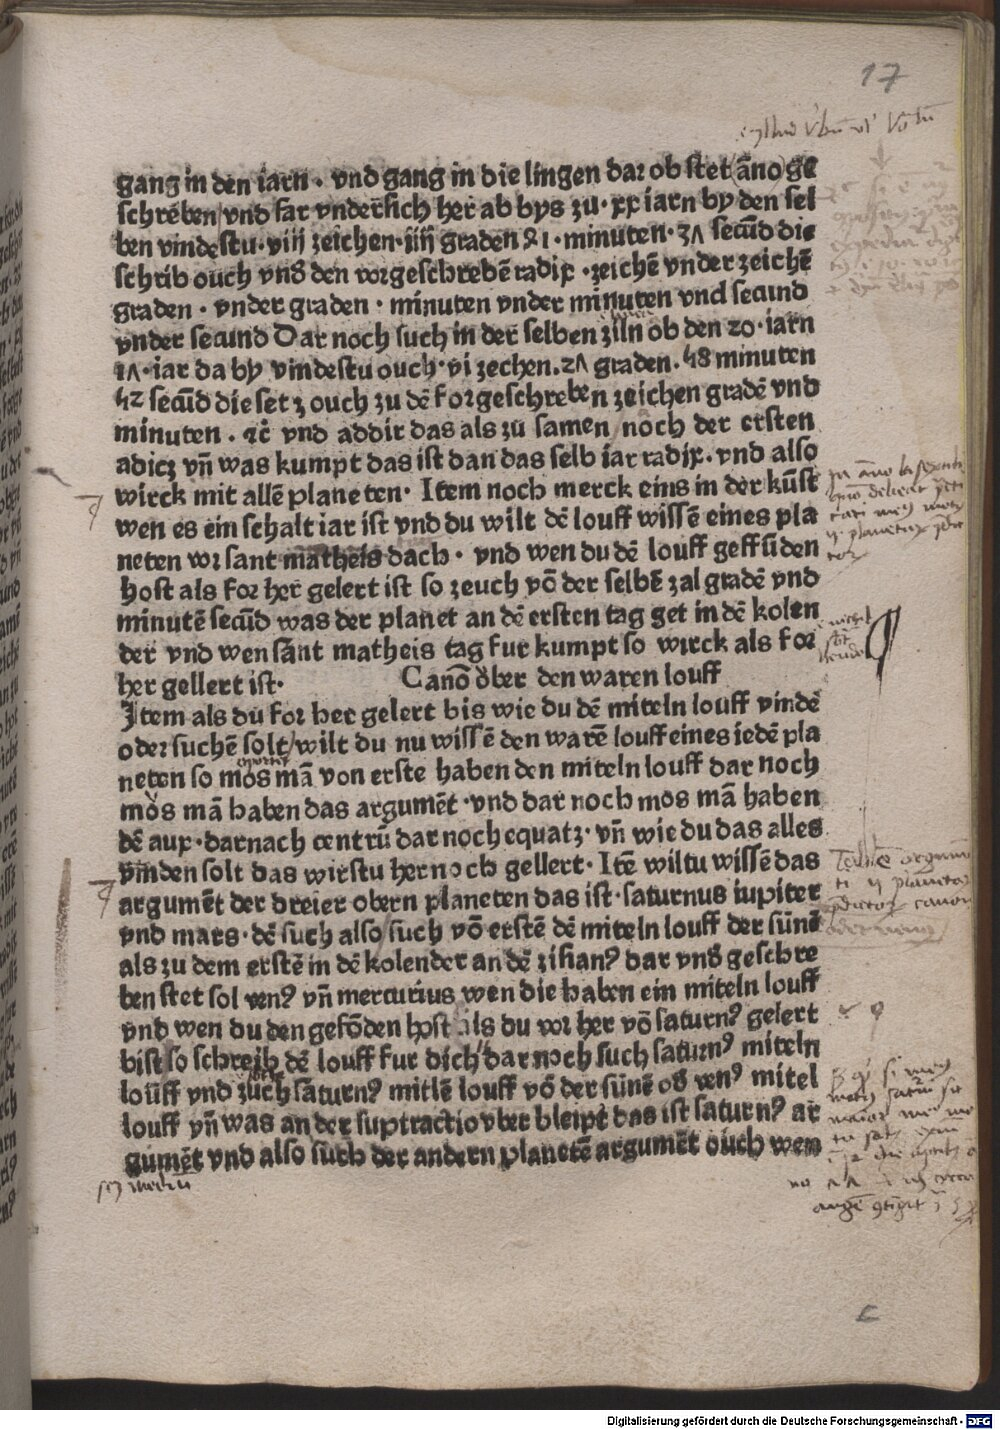 17
gang in den iarn · vnd gang in die lingen dar ob stet āno ge
schrẽben vnd far vndersich her ab bys zu · xx iarn by den sel
ben vindestu · viij zeichen · iiij graden 21 · minuten · 37 secūd die
schrib ouch vnd den vorgeschrebē radix · zeichē vnder zeichē
graden · vnder graden · minuten vnder minuten vnd secund
vnder secund Dar noch such in der selben ziln ob den 20 · iarn
17 · iar da by vindestu ouch · vi zechen . 27 graden . 48 minuten
42 secūd die setz ouch zu dē forgeschreben zeichen gradē vnd
minuten . ꝛc̄ vnd addir das als zu samen noch der ersten
adicz vn̄ was kumpt das ist dan das selb iar radix . vnd also
wirck mit allē planeten · Item noch merck eins in der kūst
wen es ein schalt iar ist vnd du wilt dē louff wissē eines pla
neten vor sant matheis dach · vnd wen du dē louff geffūden
host als for her gelert ist so zeuch vō der selbē zal gradē vnd
minutē secūd was der planet an dē ersten tag get in dē kolen
der vnd wen sant matheis tag fur kumpt so wirck als for
her gellert ist · Canō ober den waren louff
Item als du for her gelert bis wie du dē miteln louff vindē
oder suchē solt / wilt du nu wissē den warē louff eines iedē pla
neten so mos mā von erste haben den miteln louff dar noch
mos mā haben das argumēt · vnd dar noch mos mā haben
dē aux · darnach centrū dar noch equatz · vn̄ wie du das alles
vinden solt das wirstu her noch gellert · Itē wiltu wissē das
argumēt der dreier obern planeten das ist · saturnus iupiter
vnd mars · dē such also / such vō erstē dē miteln louff der sūnē
als zu dem erstē in dē kolender an dē zihanꝰ dar vnd geschre
ben stet sol venꝰ vn̄ mercurius wen die haben ein miteln louff
vnd wen du den gefōden host als du vor her vō saturnꝰ gelert
bist so schreib dē louff fur dich / dar noch such saturnꝰ miteln
louff vnd zuch saturnꝰ mitlē louff vō der sūnē os venꝰ mitel
louff vn̄ was an der suptractio vber bleipt das ist saturnꝰ ar
gumēt vnd also such der andern planetē argumēt ouch wen
c
Digitalisierung gefördert durch die Deutsche Forschungsgemeinschaft - DFG